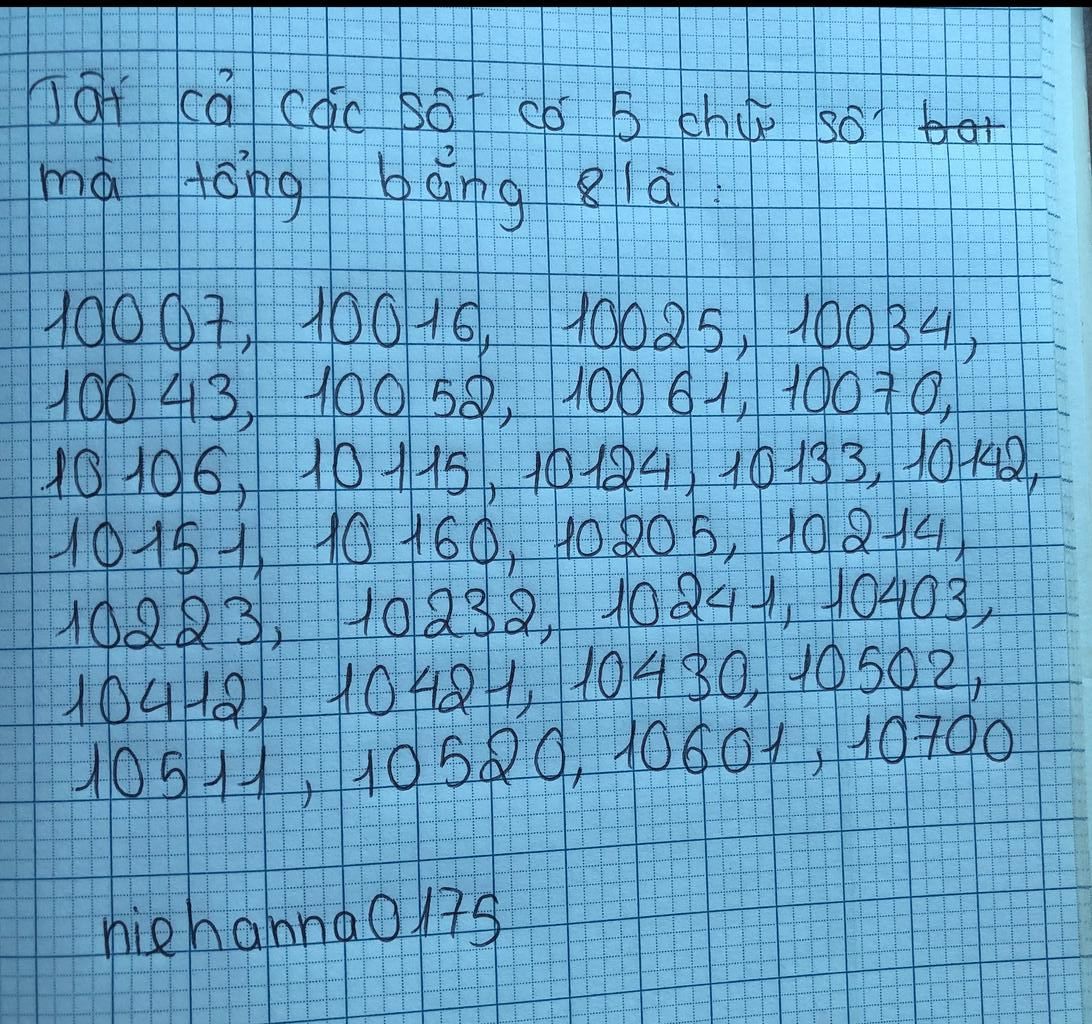 Tất cả các số có 5 chữ số bat
mà tổng bằng 8 là :
10007, 10016, 10025, 10034,
10043, 10052, 10061, 10070,
10106, 10115, 10124, 10133, 10142,
10151, 10160, 10205, 10214,
10223, 10232, 10241, 10403,
10412, 10421, 10430, 10502,
10511, 10520, 10601, 10700
niehanna0175